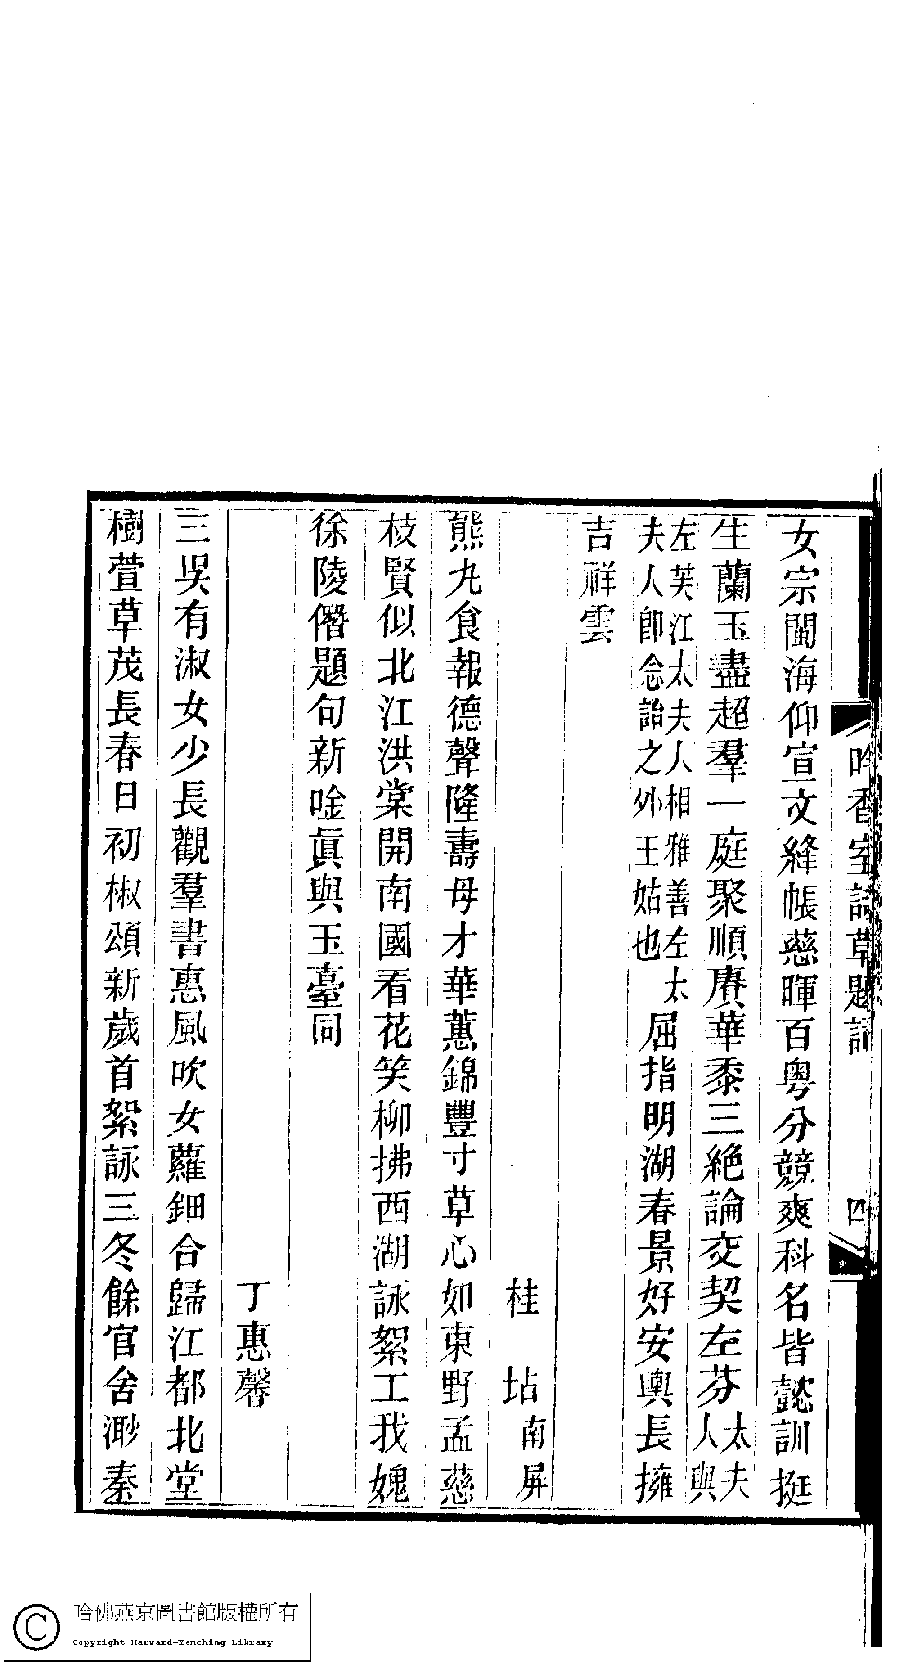 吟香室詩草題詞 四
女宗閩海仰宣文絳帳慈暉百粵分競爽科名皆懿訓挺
生蘭玉盡超羣一庭聚順賡華黍三絕論交契左芬太夫人與
左芙江太夫人相雅善左太夫人卽念詒之外王姑也屈指明湖春景好安輿長擁
吉祥雲
桂坫南屏
熊丸食報德聲隆壽母才華蕙錦豐寸草心如東野孟慈
枝賢似北江洪棠開南國看花笑柳拂西湖詠絮工我媿
徐陵僭題句新唫眞與玉臺同
丁惠馨
三吳有淑女少長觀羣書惠風吹女蘿鈿合歸江都北堂
樹萱草茂長春日初椒頌新歲首絮詠三冬餘官舍渺秦
哈佛燕京圖書館版權所有
Copyright Harvard-Yenching Library